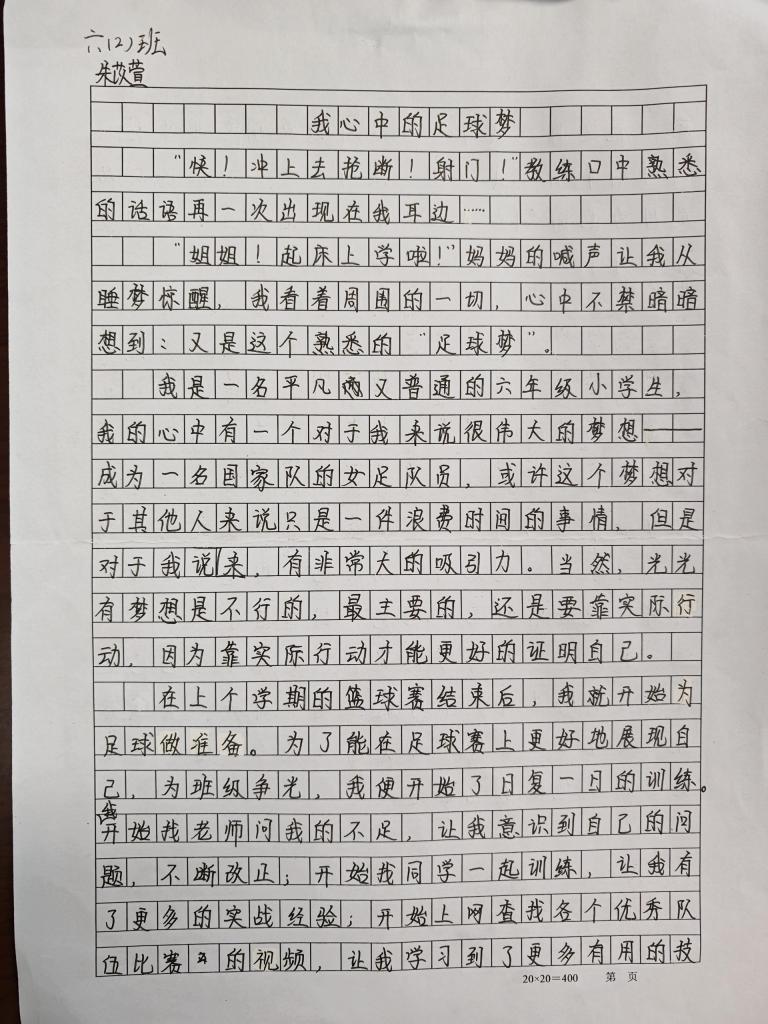 六(2)班
朱苡萱
我心中的足球梦
“快！冲上去抢断！射门！”教练口中熟悉
的话语再一次出现在我耳边……
“姐姐！起床上学啦！”妈妈的喊声让我从
睡梦惊醒，我看着周围的一切，心中不禁暗暗
想到：又是这个熟悉的“足球梦”。
我是一名平凡而又普通的六年级小学生，
我的心中有一个对于我来说很伟大的梦想——
成为一名国家队的女足队员，或许这个梦想对
于其他人来说只是一件浪费时间的事情，但是
对于我说来，有非常大的吸引力。当然，光光
有梦想是不行的，最主要的，还是要靠实际行
动，因为靠实际行动才能更好的证明自己。
在上个学期的篮球赛结束后，我就开始为
足球做准备。为了能在足球赛上更好地展现自
己，为班级争光，我便开始了日复一日的训练。
我
开始找老师问我的不足，让我意识到自己的问
题，不断改正；开始找同学一起训练，让我有
了更多的实战经验；开始上网查找各个优秀队
伍比赛的视频，让我学习到了更多有用的技
20×20=400 第 页